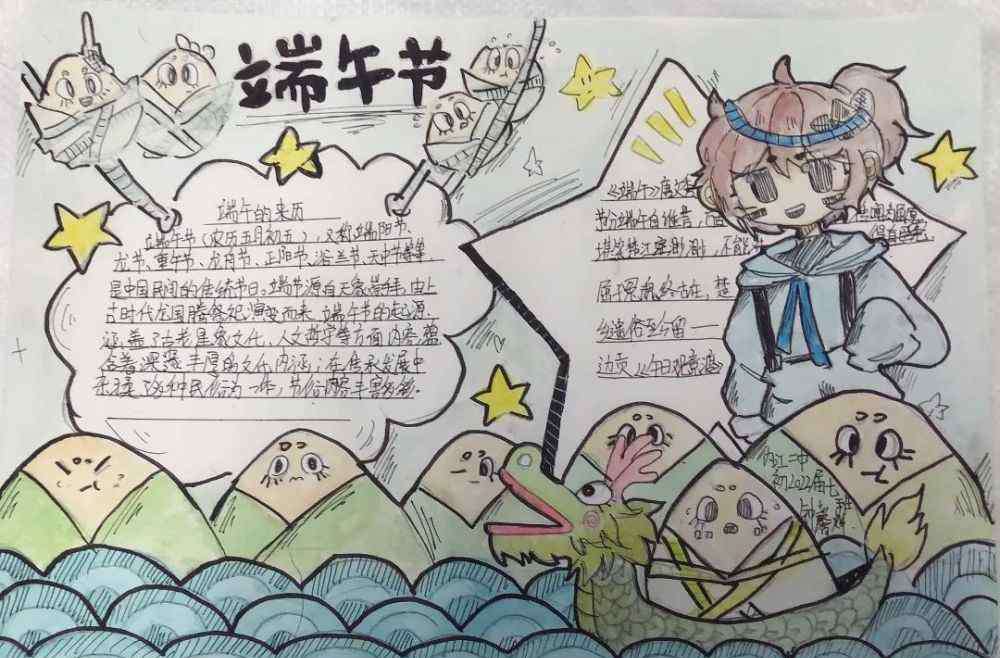 端午节
端午的来历
端午节（农历五月初五），又称端阳节、
龙节、重午节、龙舟节、正阳节、浴兰节、天中节等等，
是中国民间的传统节日。端午节源自天象崇拜，由上
古时代龙图腾祭祀演变而来。端午节的起源
涵盖了古老星象文化、人文哲学等方面内容，蕴
含着深邃丰厚的文化内涵；在传承发展中
杂糅了多种民俗为一体，节俗内容丰富
《端午》唐
节分端午自谁言，
堪笑楚江空渺渺，不能
屈子冤魂终古在，楚
乡遗俗至今留
边贡《午日观竞渡》
内江二中
初2022届七